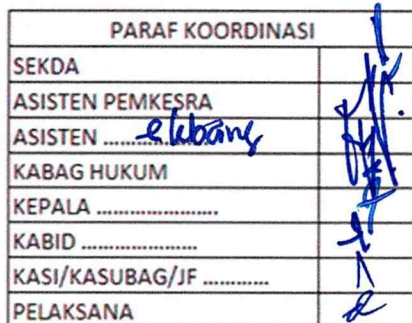 PARAF KOORDINASI
SEKDA
ASISTEN PEMKESRA
ASISTEN ...................... ekbang
KABAG HUKUM
KEPALA ......................
KABID .....................
KASI/KASUBAG/JF ............
PELAKSANA